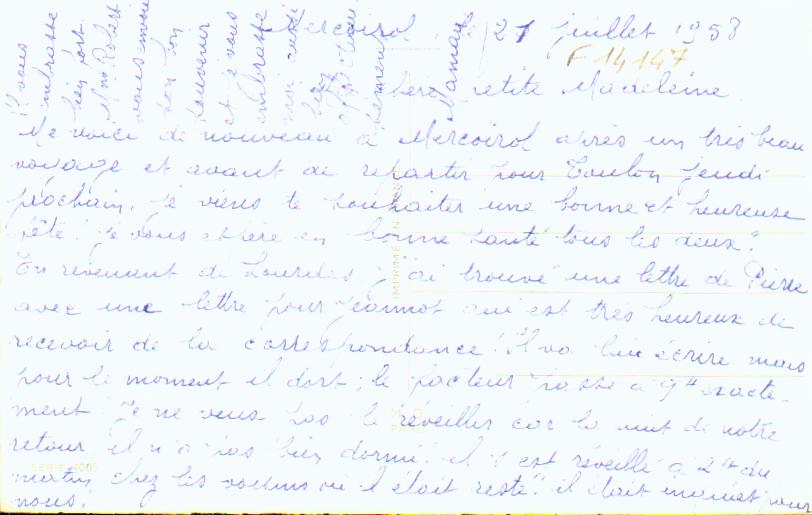 Mercoirol 21 juillet 1958
F14147
Chère petite Madeleine
Me voici de nouveau à Mercoirol après un très beau
voyage et avant de repartir pour Toulon jeudi
prochain, je viens te souhaiter une bonne et heureuse
fête! Je vous espère en bonne santé tous les deux.
En revenant de Lourdes j'ai trouvé une lettre de Pierre
avec une lettre pour Jeannot qui est très heureux de
recevoir de la correspondance! Il va lui écrire mais
pour le moment il dort; le facteur passe à 9h exacte-
ment. Je ne veux pas le réveiller car la nuit de notre
retour il n'a pas bien dormi! il s'est réveillé à 2h du
matin chez les voisins où il était resté! il était inquiet pour
nous!
Il vous
embrasse
bien fort.
Mme Robert
vous envoie
son bon
souvenir
et je vous
embrasse
moi aussi
bien
affectueu
sement
Maman
IMPRIMÉ EN
SERIE 4005